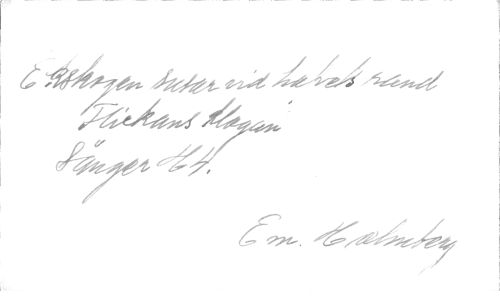 Ekskogen susar vid havets rand
"Flickans klagan"
Sånger H4.
Em. Holmberg